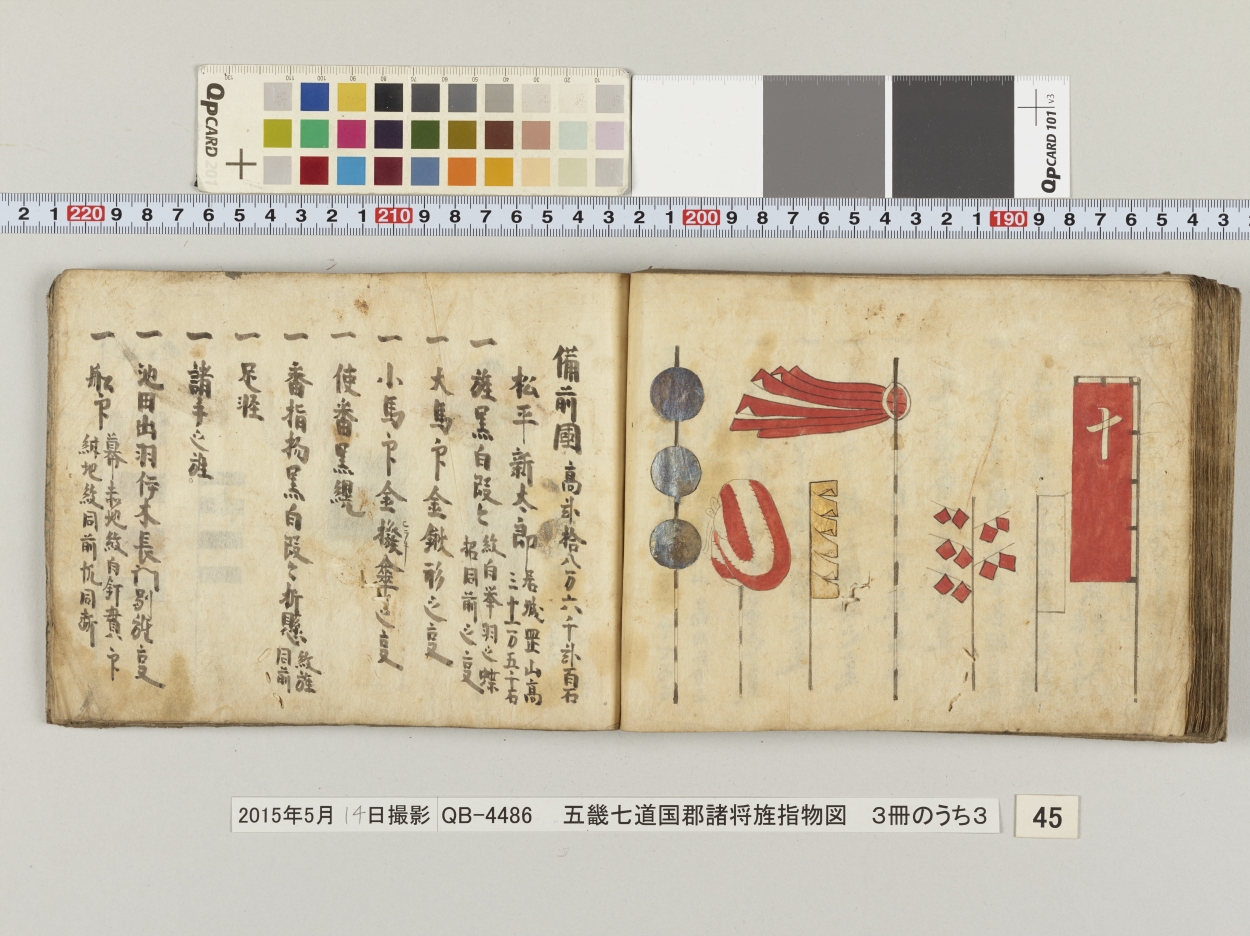 QPCARD 201
QPCARD 101 v3
2 1 220 9 8 7 6 5 4 3 2 1 210 9 8 7 6 5 4 3 2 1 200 9 8 7 6 5 4 3 2 1 190 9 8 7 6 5 4 3
十
備前國 高弐拾八万六千弐百石
松平新太郎 居城岡山高
三十一万五千石
一 旌黒白段々 紋白挙羽之蝶
招同前之㕝
一 大馬印金鍬形之㕝
一 小馬印金傘㕝
一 使番黒縨
一 番指物黒白段々折懸 紋旌
同前
一 足軽
一 諸手之旌
一 池田出羽伊木長門別旌㕝
一 船印 幕赤地紋白釘貫印
絹地紋同前帆同断
2015年5月14日撮影 QB-4486 五畿七道国郡諸将旌指物図 3冊のうち3
45